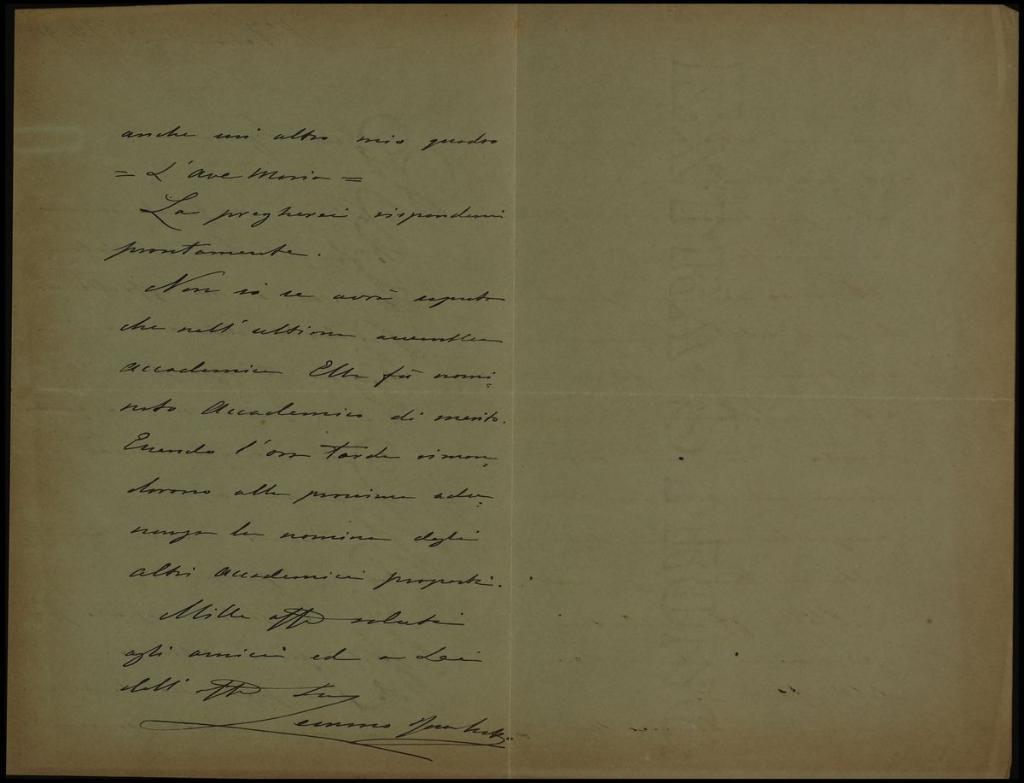 anche un' altro mio quadro
= L'Ave Maria =
La pregherei rispondermi
prontamente.
Non so se avrà saputo
che nell' ultima assemblea
accademica Ella fù nomi=
nato Accademico di merito.
Essendo l'ora tarda riman=
darono alla prossima adu=
nanza la nomina degli
altri accademici proposti.
Mille affi saluti
agli amici ed a Lei
dell' affo Suo
Lemmo